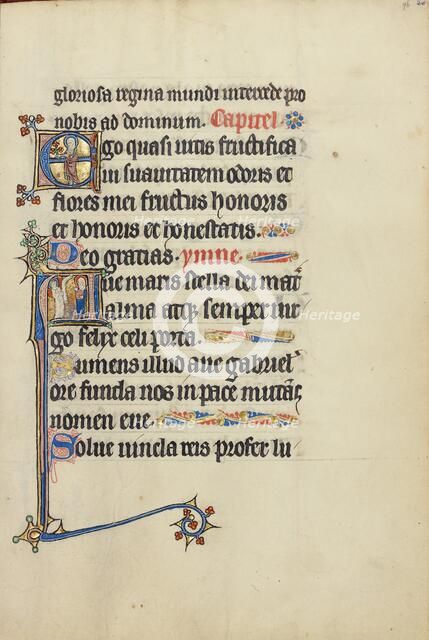 gloriosa regina mundi intercede pro
nobis ad dominum. Capitel
Ego quasi uitis fructifica
ui in suauitatem odoris et
flores mei fructus honoris
et honoris et honestatis.
Deo gratias. ymne
Aue maris stella dei mat
alma atq; semper uir
go felix celi porta.
Sumens illud aue gabriel
ore funda nos in pace mutans
nomen eue
Solue uincla reis profer lu
Heritage